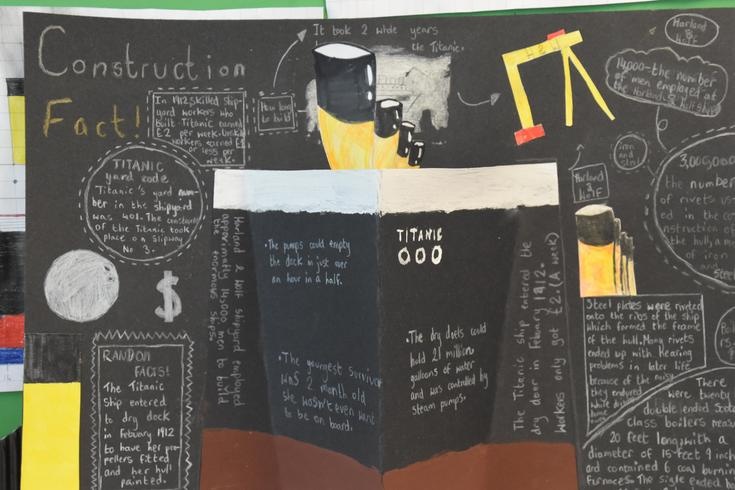 Construction
Fact!
In 1912 skilled ship
yard workers who
built Titanic earned
£2 per week.
workers earned £1
or less per
week.
How long
to build
It took 2 whole years
the Titanic.
H & W
Harland
&
Wolff
14,000-the number
of men employed at
the Harland & Wolff
iron
and
Harland
& Wolff
3,000,000
the number
of rivets us
ed in the co
nstruction of
the hull, a
of iron
and
Steel
TITANIC
yard code
Titanic's yard num-
ber in the shipyard
was 401. The
of the Titanic took
place on Slipway
No 3.
$
RANDOM
FACTS!
The Titanic
Ship entered
to dry dock
in Febuary 1912
to have her pro-
pellers fitted
and her hull
painted.
Harland & Wolf shipyard employed
approximately 14,000 men to build
the enormous ships.
•The pumps could empty
the dock in just over
an hour in a half.
•The youngest survivor
was 2 month old
she wasn't even want
to be on board.
TITANIC
000
•The dry docts could
hold 21 million
galloons of water
and was controlled by
steam pumps.
The Titanic ship entered the
dry door in Febuary 1912.
Workers only got £2. (A week)
Steel plates were riveted
onto the ribs of the ship
which formed the frame
of the hull. Many rivets
ended up with Hearing
problems in later life
because of the noise
they endured
There
were twenty
double ended Scotch
class boilers meas
20 feet long, with a
diameter of 15-feet 9 inch
and contained 6 coal burning
Furnaces. The single ended b